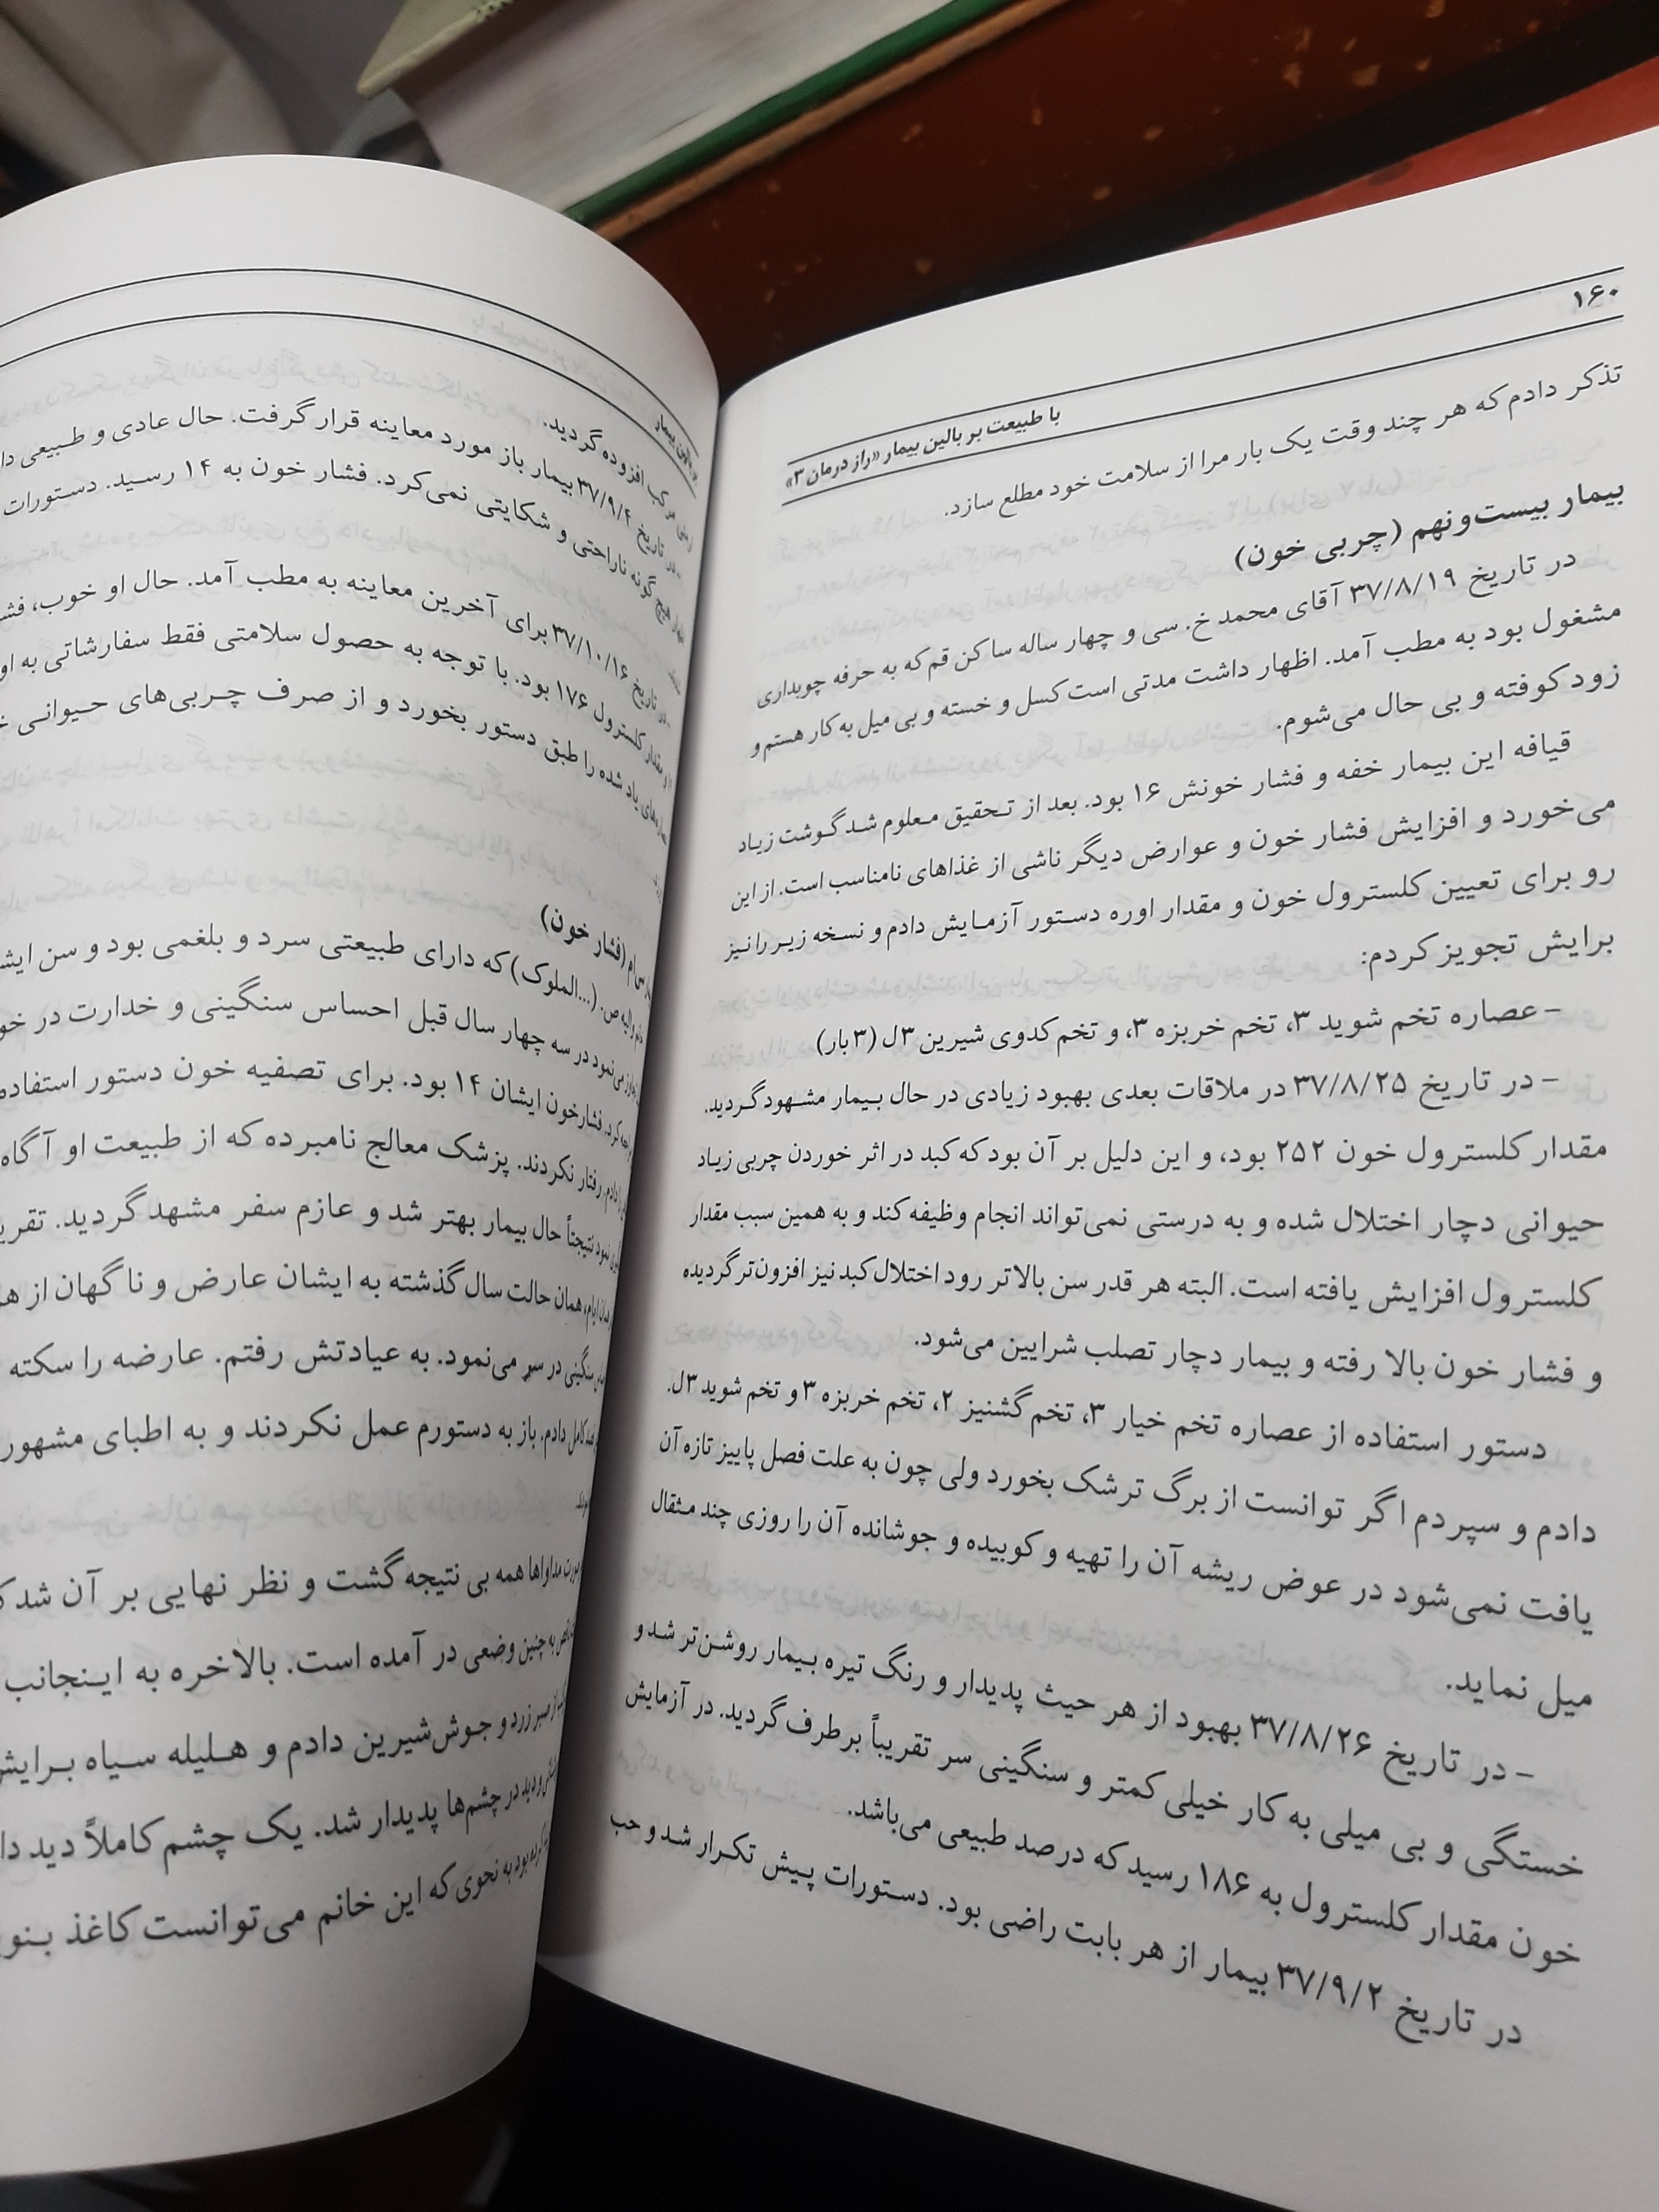 ۱۶۰
با طبیعت بر بالین بیمار «راز درمان ۳»
تذکر دادم که هر چند وقت یک بار مرا از سلامت خود مطلع سازد.
بیمار بیست‌ونهم (چربی خون)
در تاریخ ۳۷/۸/۱۹ آقای محمد خ. سی و چهار ساله ساکن قم که به حرفه چوبداری
مشغول بود به مطب آمد. اظهار داشت مدتی است کسل و خسته و بی میل به کار هستم و
زود کوفته و بی حال می‌شوم.
قیافه این بیمار خفه و فشار خونش ۱۶ بود. بعد از تحقیق معلوم شد گوشت زیاد
می‌خورد و افزایش فشار خون و عوارض دیگر ناشی از غذاهای نامناسب است. از این
رو برای تعیین کلسترول خون و مقدار اوره دستور آزمایش دادم و نسخه زیر را نیز
برایش تجویز کردم:
- عصاره تخم شوید ۳، تخم خربزه ۳، و تخم کدوی شیرین ۳ل (۳ بار)
- در تاریخ ۳۷/۸/۲۵ در ملاقات بعدی بهبود زیادی در حال بیمار مشهود گردید.
مقدار کلسترول خون ۲۵۲ بود، و این دلیل بر آن بود که کبد در اثر خوردن چربی زیاد
حیوانی دچار اختلال شده و به درستی نمی‌تواند انجام وظیفه کند و به همین سبب مقدار
کلسترول افزایش یافته است. البته هر قدر سن بالاتر رود اختلال کبد نیز افزون‌تر گردیده
و فشار خون بالا رفته و بیمار دچار تصلب شرایین می‌شود.
دستور استفاده از عصاره تخم خیار ۳، تخم گشنیز ۲، تخم خربزه ۳ و تخم شوید ۳ل.
دادم و سپردم اگر توانست از برگ ترشک بخورد ولی چون به علت فصل پاییز تازه آن
یافت نمی‌شود در عوض ریشه آن را تهیه و کوبیده و جوشانده آن را روزی چند مثقال
میل نماید.
- در تاریخ ۳۷/۸/۲۶ بهبود از هر حیث پدیدار و رنگ تیره بیمار روشن‌تر شد و
خستگی و بی میلی به کار خیلی کمتر و سنگینی سر تقریباً برطرف گردید. در آزمایش
خون مقدار کلسترول به ۱۸۶ رسید که درصد طبیعی می‌باشد.
در تاریخ ۳۷/۹/۲ بیمار از هر بابت راضی بود. دستورات پیش تکرار شد و حب
مرکب افزوده گردید.
- در تاریخ ۳۷/۹/۴ بیمار باز مورد معاینه قرار گرفت. حال عادی و طبیعی
گونه ناراحتی و شکایتی نمی‌کرد. فشار خون به ۱۴ رسید. دستورات
- در تاریخ ۳۷/۱۰/۱۶ برای آخرین معاینه به مطب آمد. حال او خوب،
مقدار کلسترول ۱۷۶ بود. با توجه به حصول سلامتی فقط سفارشاتی به او
یاد شده را طبق دستور بخورد و از صرف چربی‌های حیوانی
(فشار خون)
ص. (...الملوک) که دارای طبیعتی سرد و بلغمی بود و سن
می‌نمود در سه چهار سال قبل احساس سنگینی و خدارت در
کرد. فشارخون ایشان ۱۴ بود. برای تصفیه خون دستور استفاده
دادم، رفتار نکردند. پزشک معالج نامبرده که از طبیعت او آگاه
نمود نتیجتاً حال بیمار بهتر شد و عازم سفر مشهد گردید.
ایام، همان حالت سال گذشته به ایشان عارض و ناگهان از
سنگینی در سر می‌نمود. به عیادتش رفتم. عارضه را سکته
کامل دادم. باز به دستورم عمل نکردند و به اطبای مشهور
مداواها همه بی نتیجه گشت و نظر نهایی بر آن شد
به چنین وضعی در آمده است. بالاخره به اینجانب
از صبر زرد و جوش‌شیرین دادم و هلیله سیاه
دید در چشم‌ها پدیدار شد. یک چشم کاملاً دید
بود به نحوی که این خانم می‌توانست کاغذ